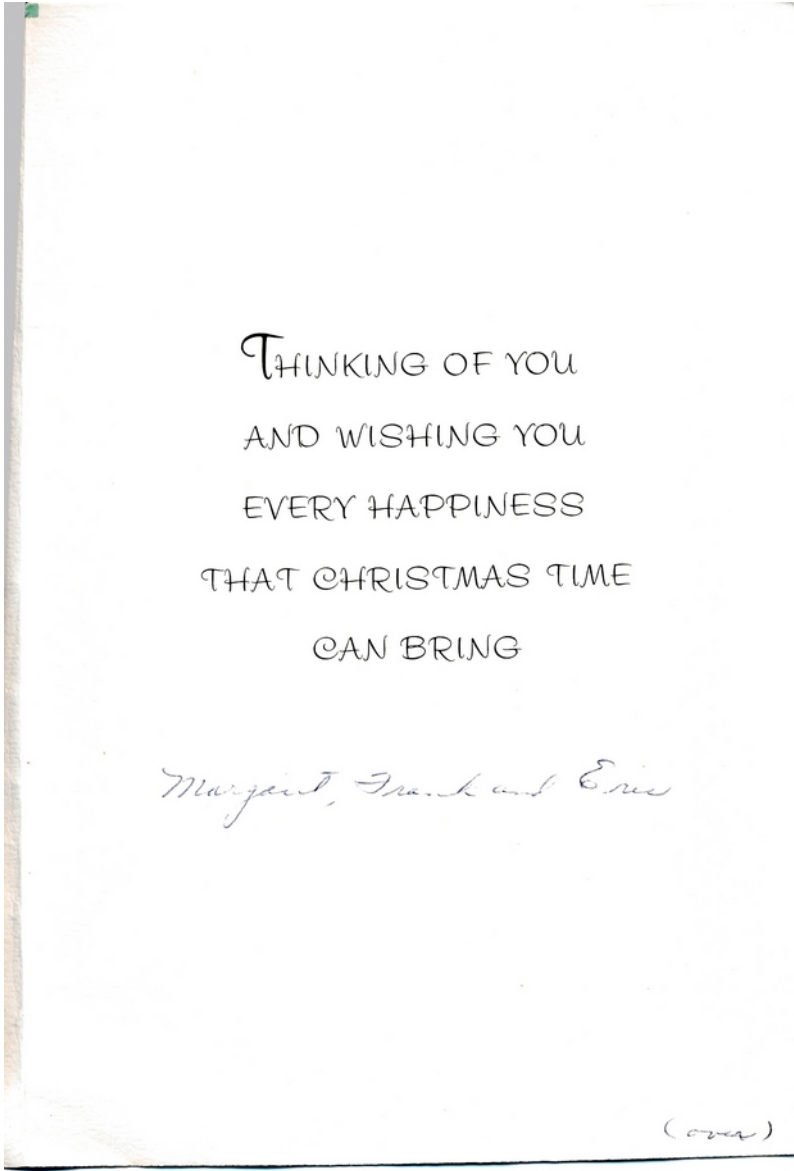 THINKING OF YOU
AND WISHING YOU
EVERY HAPPINESS
THAT CHRISTMAS TIME
CAN BRING
Margaret, Frank and
(over)